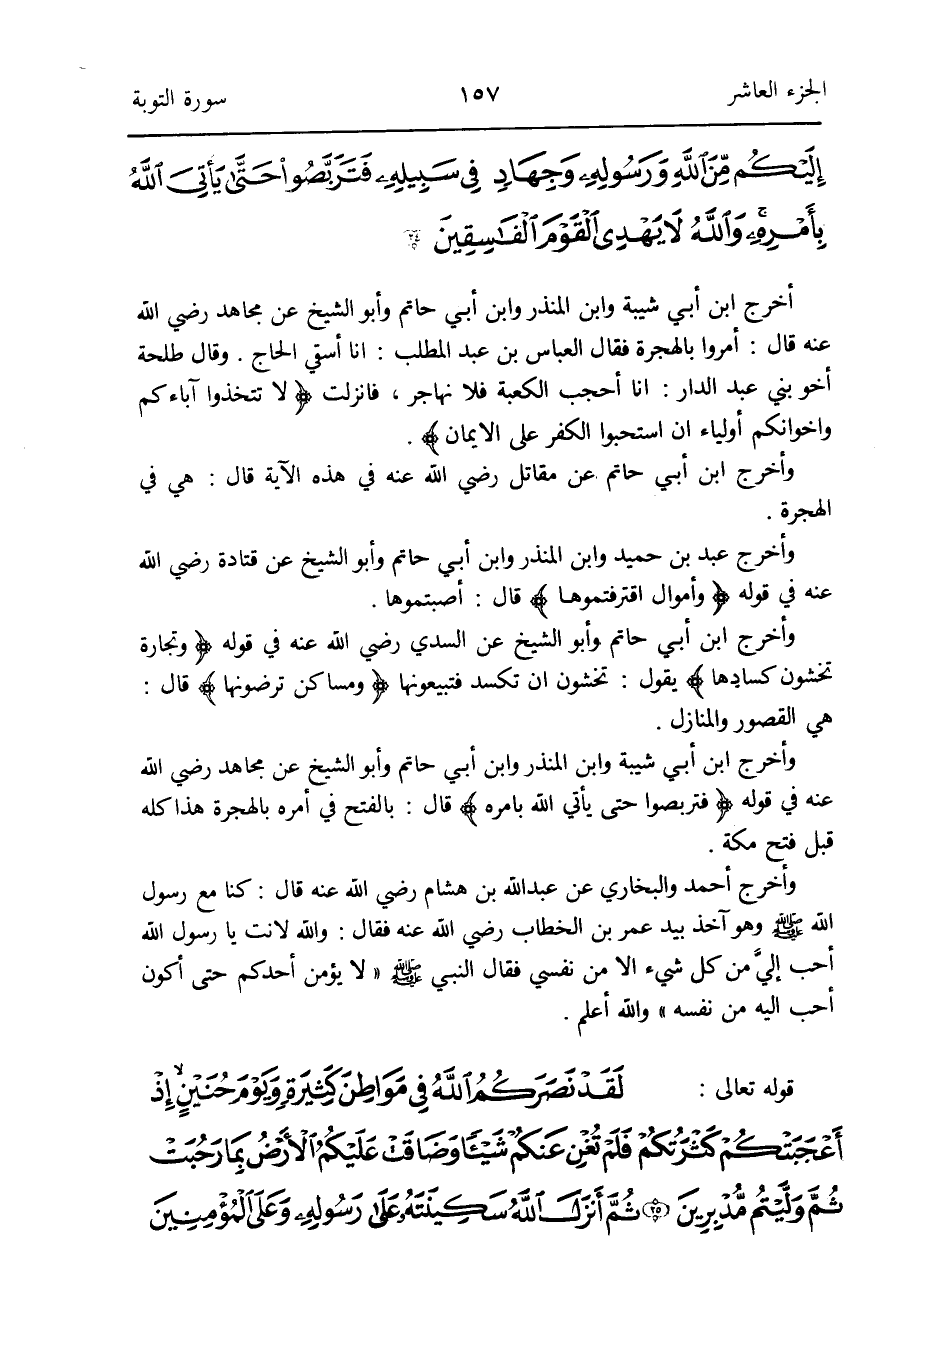 الجزء العاشر ١٥٧ سورة التوبة
إِلَيْكُم مِّنَ ٱللَّهِ وَرَسُولِهِۦ وَجِهَادٍ فِى سَبِيلِهِۦ فَتَرَبَّصُوا۟ حَتَّىٰ يَأْتِىَ ٱللَّهُ
بِأَمْرِهِۦ ۗ وَٱللَّهُ لَا يَهْدِى ٱلْقَوْمَ ٱلْفَـٰسِقِينَ ٢٤
أخرج ابن أبي شيبة وابن المنذر وابن أبي حاتم وأبو الشيخ عن مجاهد رضي الله
عنه قال : أمروا بالهجرة فقال العباس بن عبد المطلب : انا أسقي الحاج . وقال طلحة
أخو بني عبد الدار : انا أحجب الكعبة فلا نهاجر ، فانزلت ﴿ لا تتخذوا آباءكم
واخوانكم أولياء ان استحبوا الكفر على الايمان ﴾ .
وأخرج ابن أبي حاتم عن مقاتل رضي الله عنه في هذه الآية قال : هي في
الهجرة .
وأخرج عبد بن حميد وابن المنذر وابن أبي حاتم وأبو الشيخ عن قتادة رضي الله
عنه في قوله ﴿ وأموال اقترفتموها ﴾ قال : أصبتموها .
وأخرج ابن أبي حاتم وأبو الشيخ عن السدي رضي الله عنه في قوله ﴿ وتجارة
تخشون كسادها ﴾ يقول : تخشون ان تكسد فتبيعونها ﴿ ومساكن ترضونها ﴾ قال :
هي القصور والمنازل .
وأخرج ابن أبي شيبة وابن المنذر وابن أبي حاتم وأبو الشيخ عن مجاهد رضي الله
عنه في قوله ﴿ فتربصوا حتى يأتي الله بامره ﴾ قال : بالفتح في أمره بالهجرة هذا كله
قبل فتح مكة .
وأخرج أحمد والبخاري عن عبدالله بن هشام رضي الله عنه قال : كنا مع رسول
الله ﷺ وهو آخذ بيد عمر بن الخطاب رضي الله عنه فقال : والله لانت يا رسول الله
أحب إليَّ من كل شيء الا من نفسي فقال النبي ﷺ « لا يؤمن أحدكم حتى أكون
أحب اليه من نفسه » والله أعلم .
قوله تعالى : لَقَدْ نَصَرَكُمُ ٱللَّهُ فِى مَوَاطِنَ كَثِيرَةٍ وَيَوْمَ حُنَيْنٍ ۙ إِذْ
أَعْجَبَتْكُمْ كَثْرَتُكُمْ فَلَمْ تُغْنِ عَنكُمْ شَيْـًٔا وَضَاقَتْ عَلَيْكُمُ ٱلْأَرْضُ بِمَا رَحُبَتْ
ثُمَّ وَلَّيْتُم مُّدْبِرِينَ ٢٥ ثُمَّ أَنزَلَ ٱللَّهُ سَكِينَتَهُۥ عَلَىٰ رَسُولِهِۦ وَعَلَى ٱلْمُؤْمِنِينَ